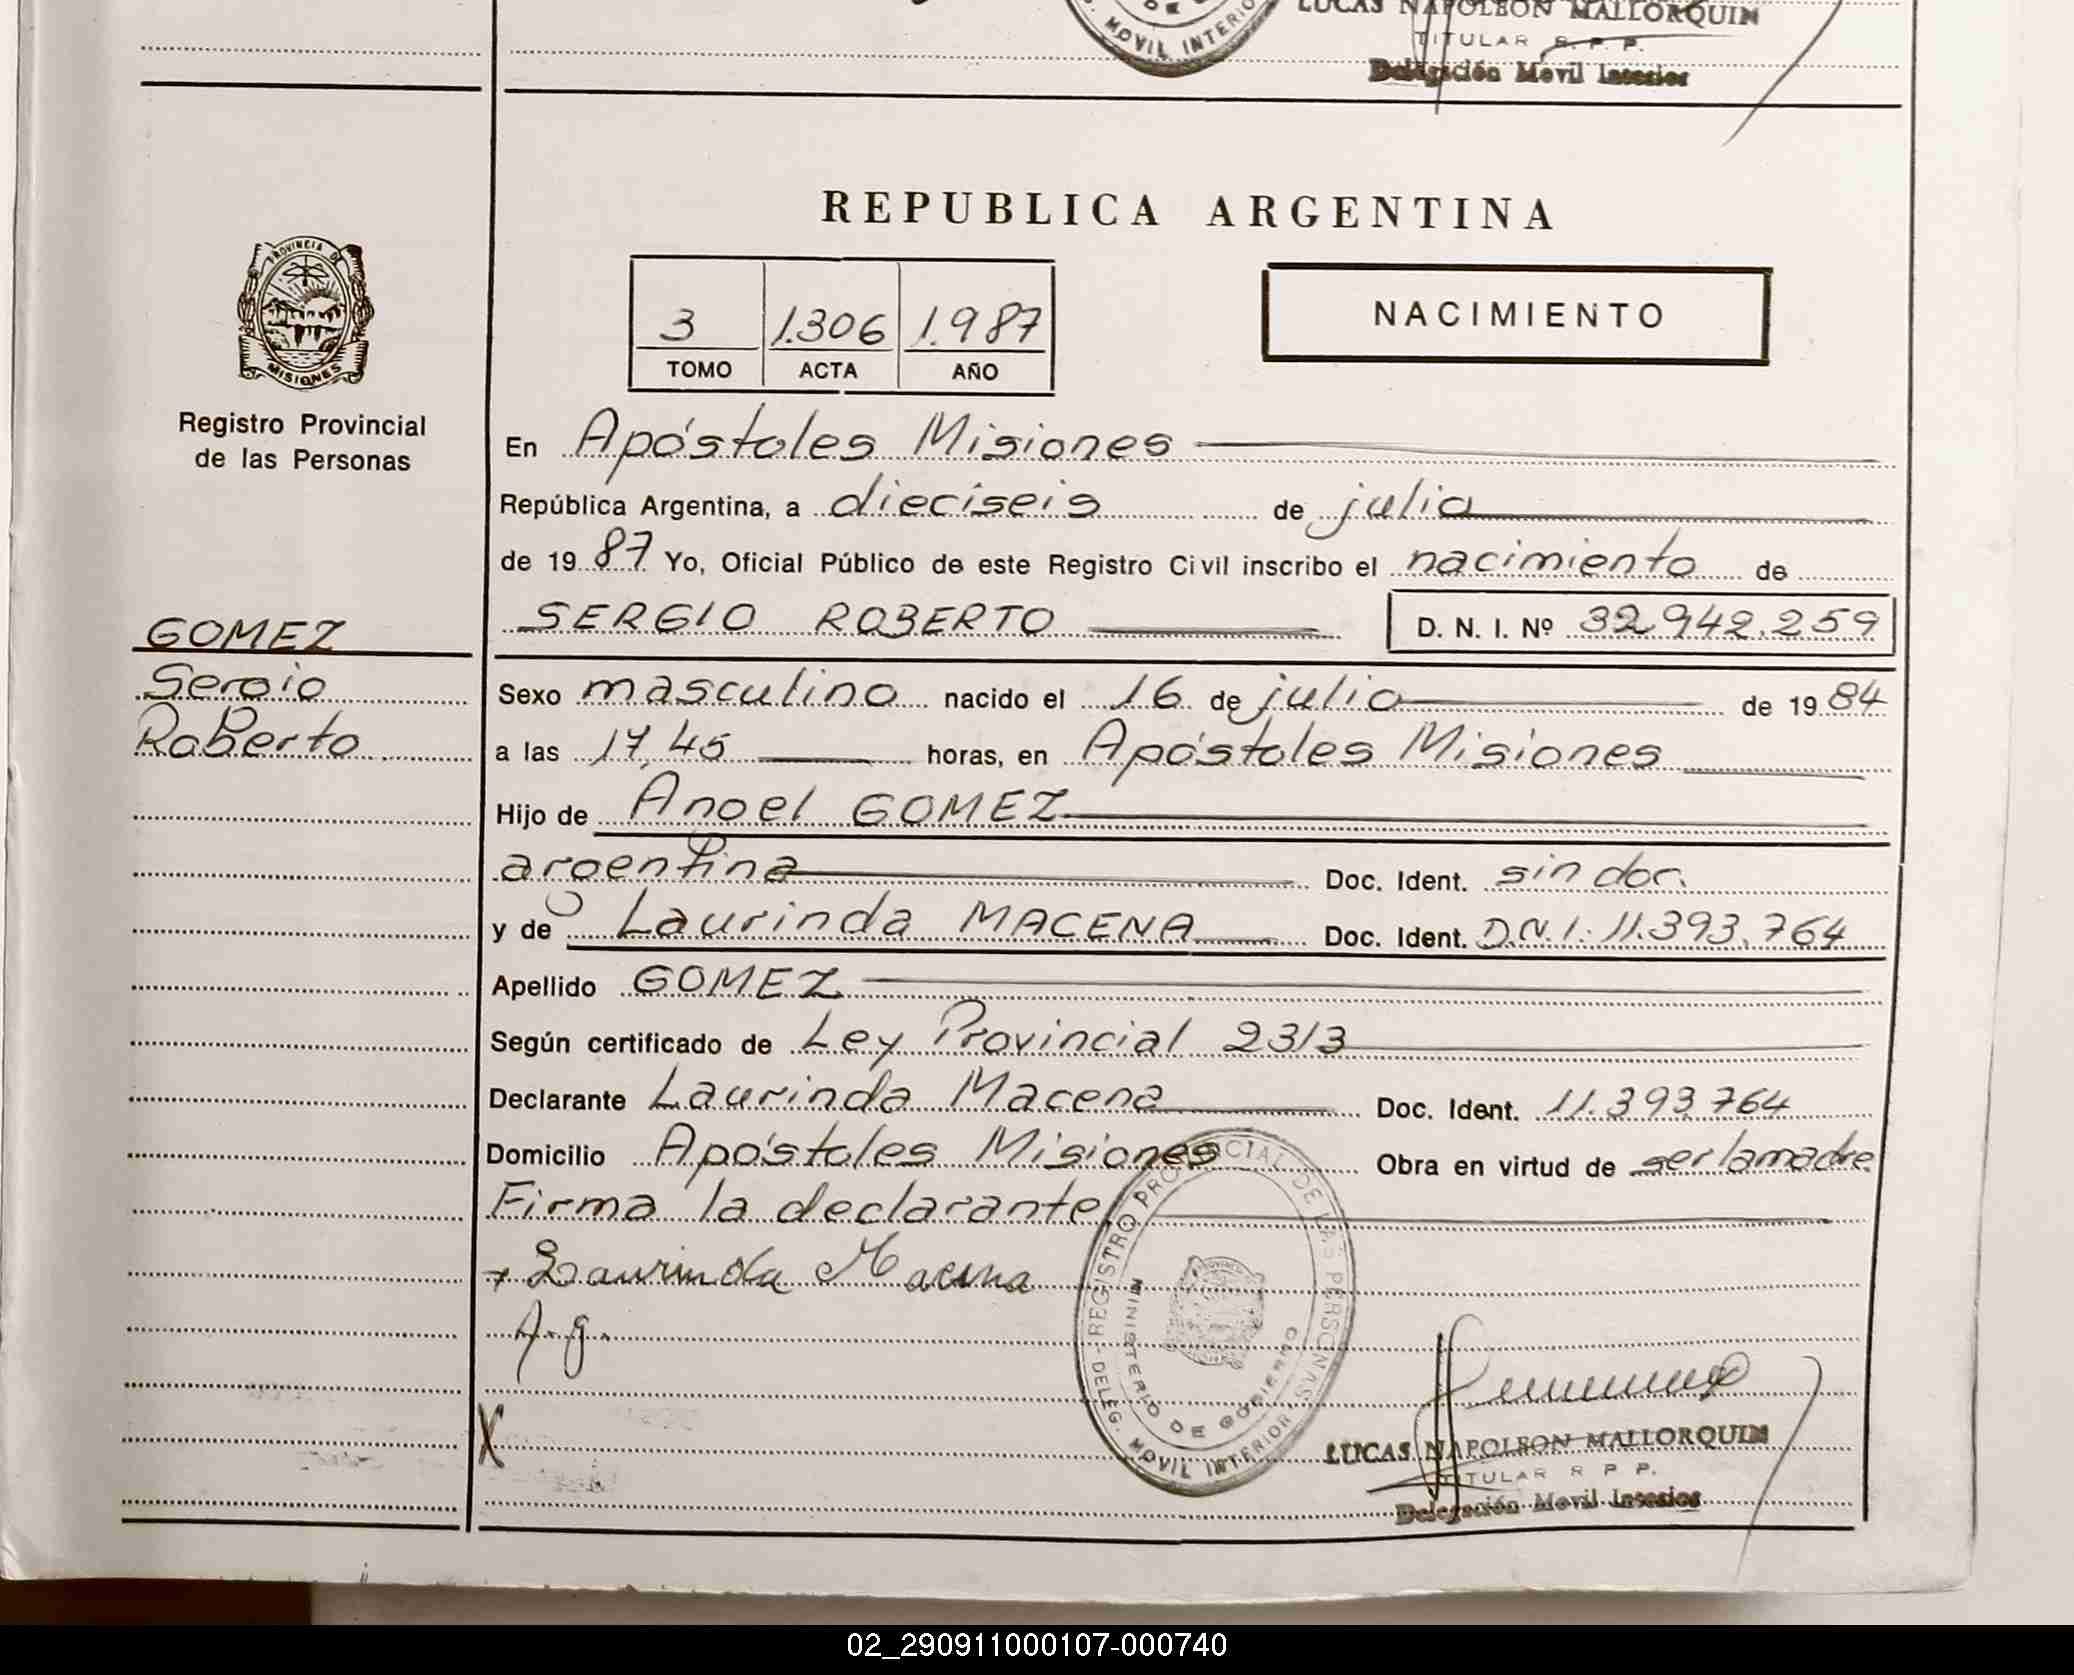 LUCAS NAPOLEON MALLORQUIN
MOVIL INTERIOR
TITULAR R. P. P.
Delegación Movil Interior
REPUBLICA ARGENTINA
PROVINCIA DE
MISIONES
Registro Provincial
de las Personas
3 1.306 1.987
TOMO ACTA AÑO
NACIMIENTO
En Apóstoles Misiones
República Argentina, a dieciseis de julio
de 1987 Yo, Oficial Público de este Registro Civil inscribo el nacimiento de
SERGIO ROBERTO D. N. I. Nº 32.942.259
GOMEZ
Sergio
Roberto
Sexo masculino nacido el 16 de julio de 1984
a las 17,45 horas, en Apóstoles Misiones
Hijo de Angel GOMEZ
argentina Doc. Ident. sin doc.
y de Laurinda MACENA Doc. Ident. D.N.I. 11.393.764
Apellido GOMEZ
Según certificado de Ley Provincial 2313
Declarante Laurinda Macena Doc. Ident. 11.393.764
Domicilio Apóstoles Misiones Obra en virtud de ser la madre
Firma la declarante
Laurinda Macena
A.g.
REGISTRO PROVINCIAL DE LAS PERSONAS
MINISTERIO DE GOBIERNO
DELEG. MOVIL INTERIOR
X
LUCAS NAPOLEON MALLORQUIN
TITULAR R P P.
Delegación Movil Interior
02_290911000107-000740